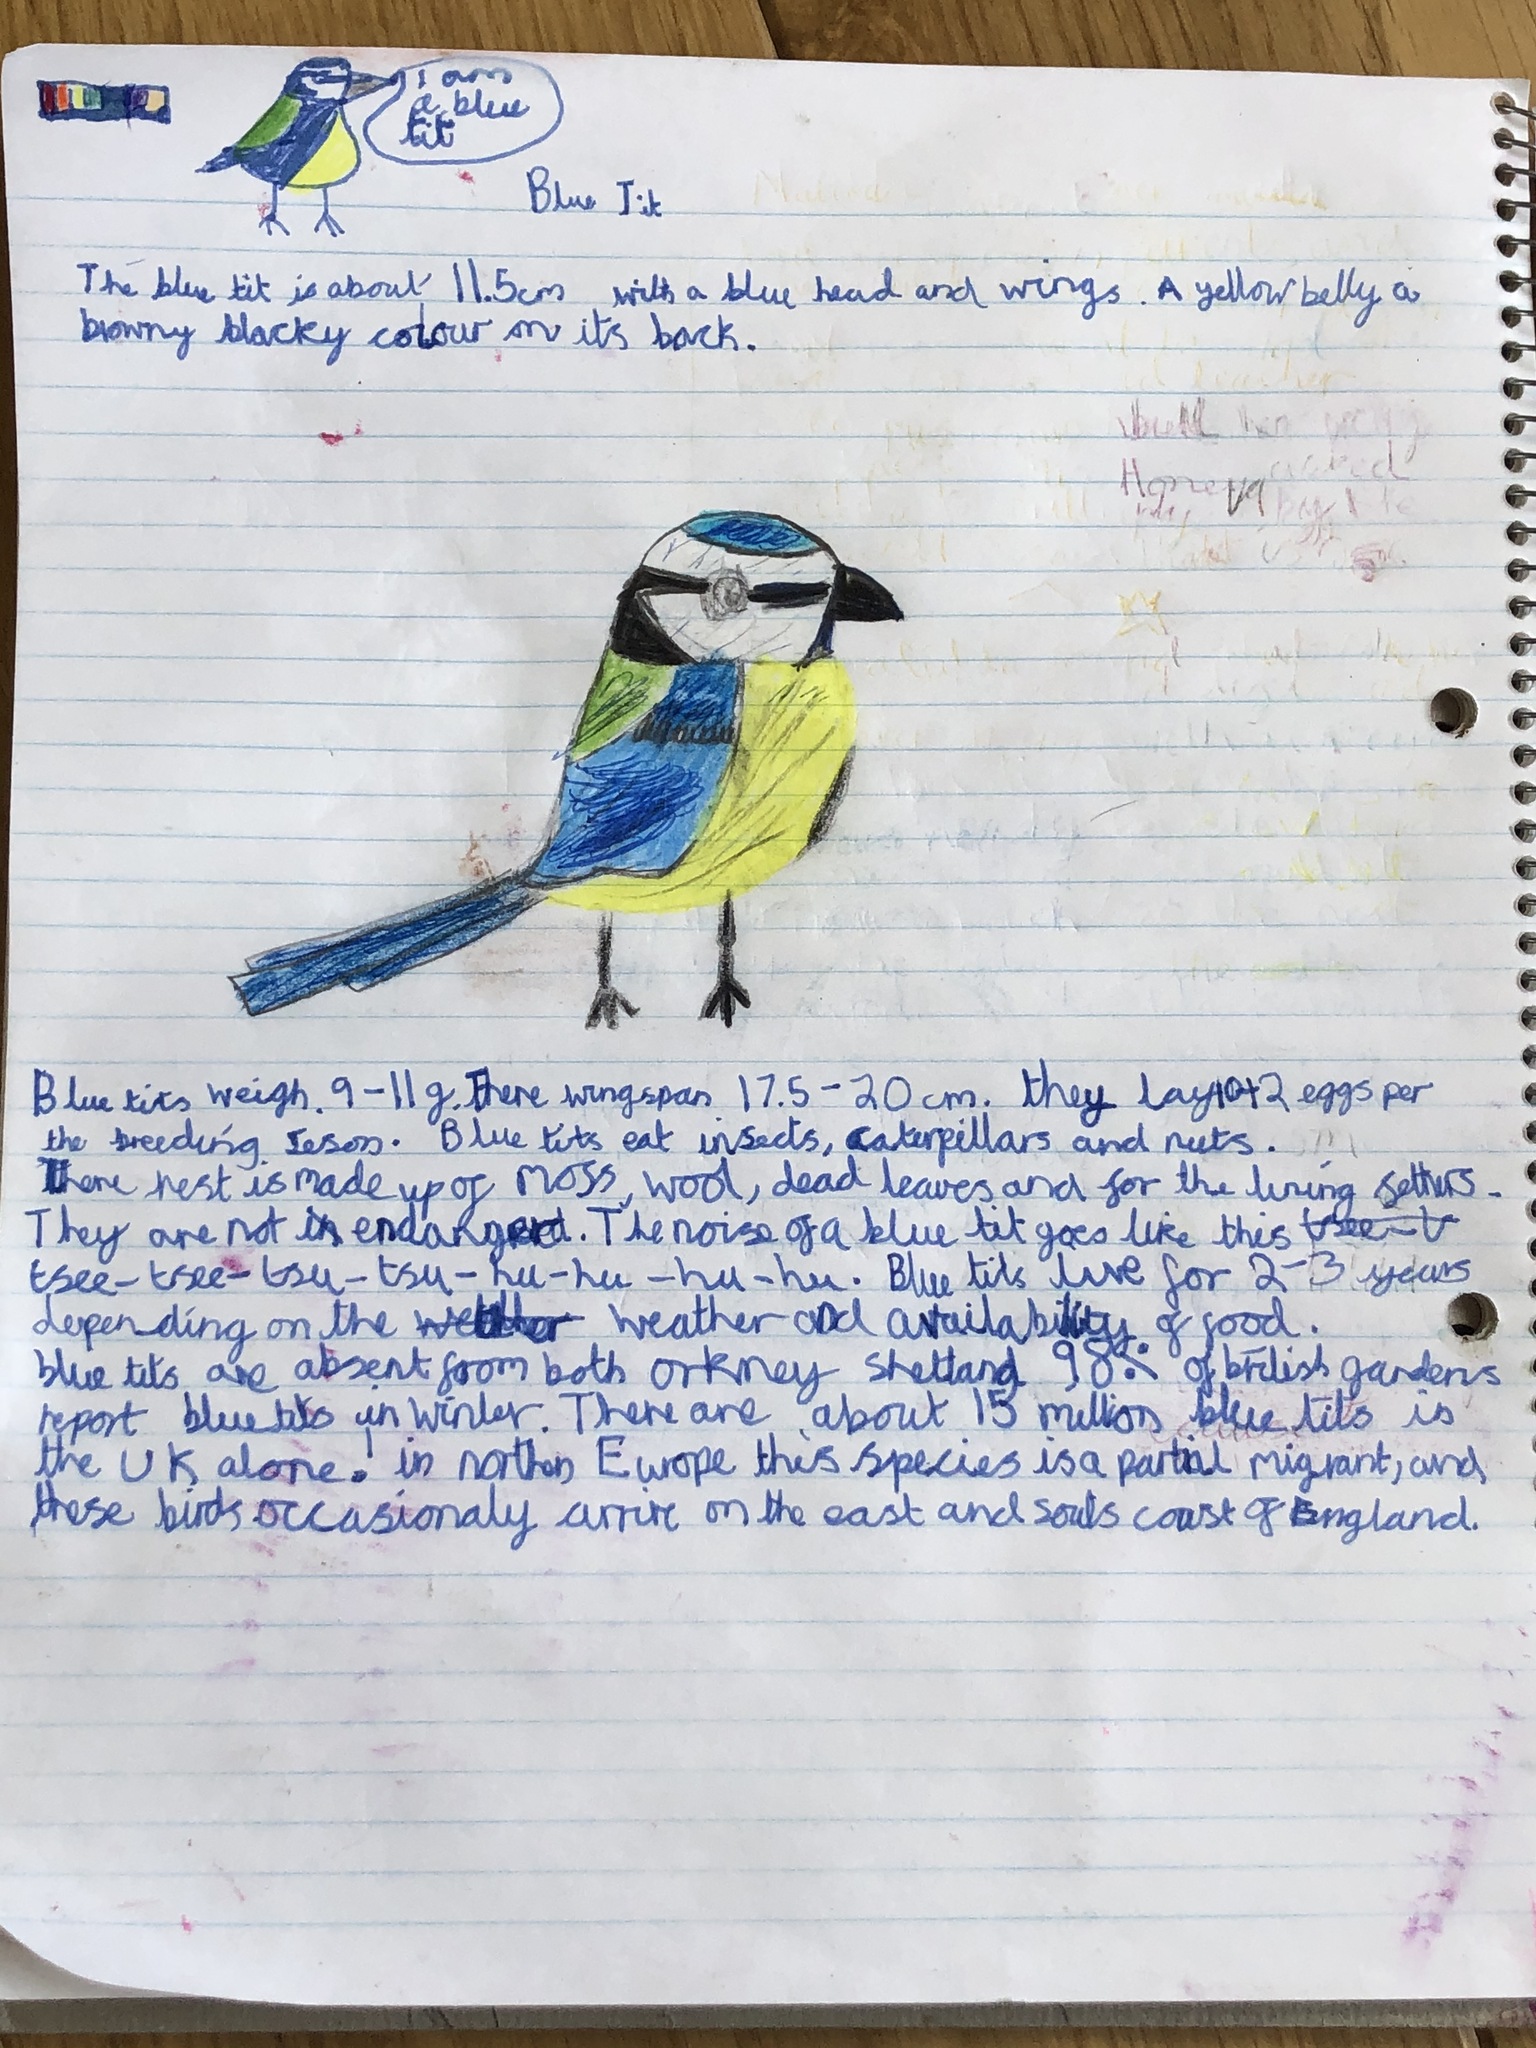 i am
a blue
tit
Blue Tit
The blue tit is about 11.5cm with a blue head and wings. A yellow belly a
browny blacky colour on its back.
Blue tits weigh. 9-11g. There wingspan 17.5-20cm. they lay 10+2 eggs per
the breeding seson. Blue tits eat insects, caterpillars and nuts.
There nest is made up of moss, wool, dead leaves and for the lining fethers.
They are not in endangered. The noise of a blue tit goes like this tsee-t
tsee-tsee-tsu-tsu-hu-hu-hu-hu. Blue tits live for 2-3 years
depending on the weather and availability of food.
blue tits are absent from both orkney shetland 98% of british gardens
report blue tits in winter. There are about 15 million blue tits is
the UK alone! in northen Europe this species is a partial migrant, and
these birds occasionaly arrive on the east and south coast of England.